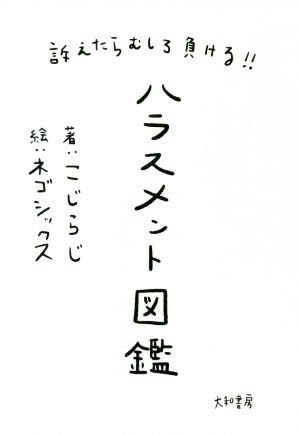 訴えたらむしろ負ける!!
ハラスメント図鑑
著:こじらじ
絵:ネゴシックス
大和書房